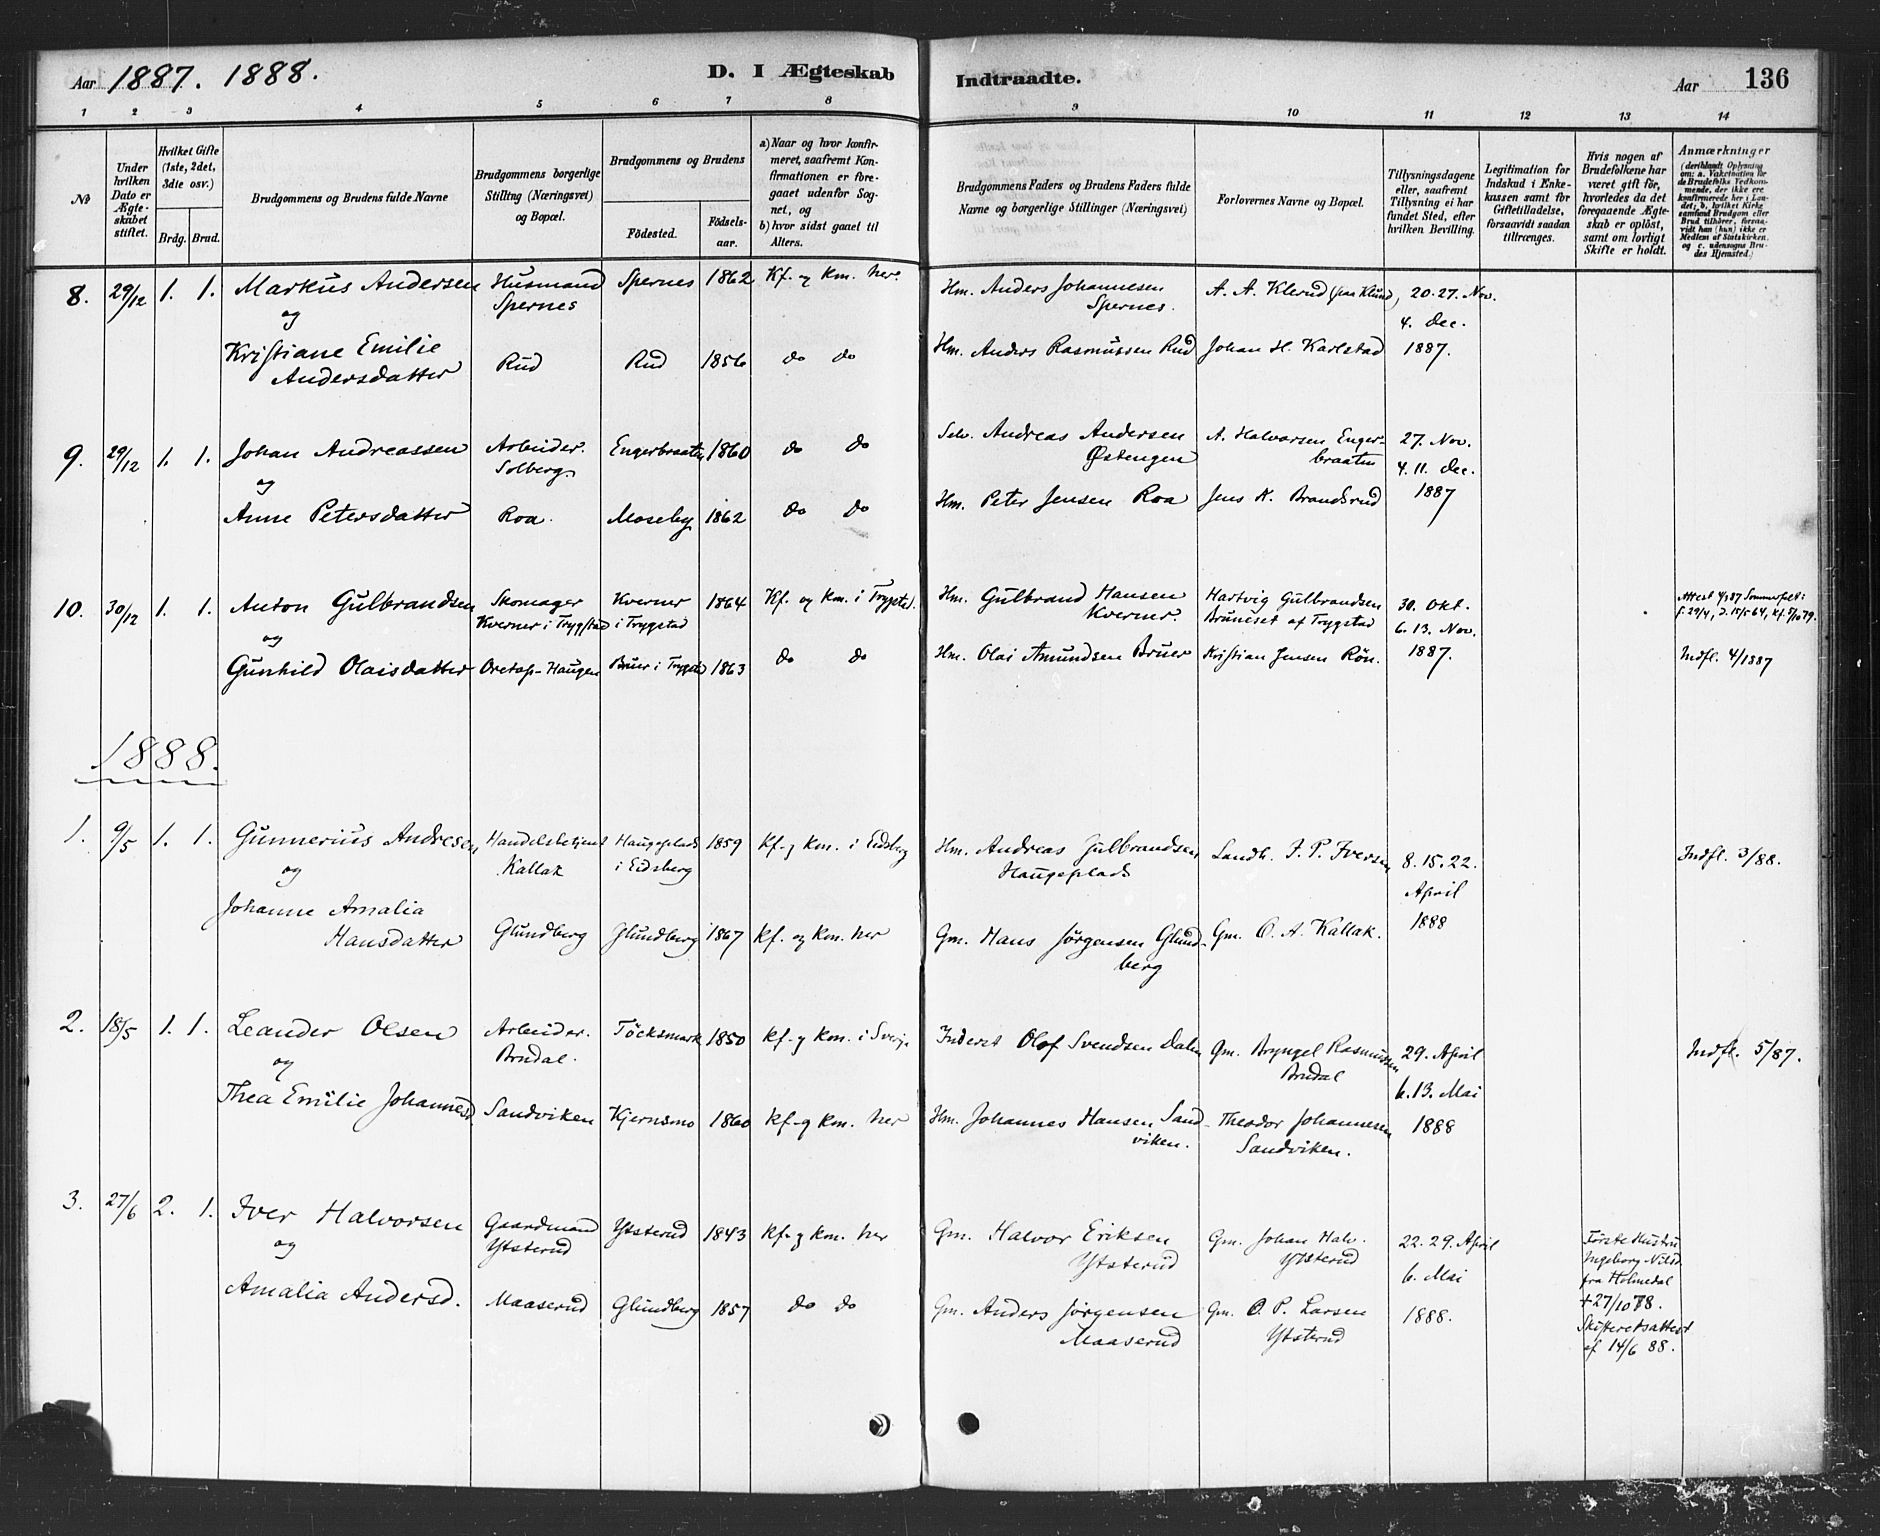 Aar 1887. 1888.
D. I Ægteskab Indtraadte.
Aar 136
1 2 3 4 5 6 7 8 9 10 11 12 13 14
№
Under hvilken Dato er Ægteskabet stiftet.
Hvilket Gifte (1ste, 2det, 3die osv.)
Brdg. Brud.
Brudgommens og Brudens fulde Navne
Brudgommens borgerlige Stilling (Næringsvei) og Bopæl.
Brudgommens og Brudens
Födested. Födselsaar.
a) Naar og hvor konfirmeret, saafremt Konfirmationen er foregaaet udenfor Sognet, og
b) hvor sidst gaaet til Alters.
Brudgommens Faders og Brudens Faders fulde Navne og borgerlige Stillinger (Næringsvei)
Forlovernes Navne og Bopæl.
Tillysningsdagene eller, saafremt Tillysning ei har fundet Sted, efter hvilken Bevilling.
Legitimation for Indskud i Enkekassen samt for Giftetilladelse, forsaavidt saadan tiltrænges.
Hvis nogen af Brudefolkene har været gift för, hvorledes da det foregaaende Ægteskab er oplöst, samt om lovligt Skifte er holdt.
Anmærkninger (deriblandt Oplysning om: a. Vakcination för de Brudefolks Vedkommende, der ikke ere konfirmerede her i Landet; b. hvilket Kirkesamfund Brudgom eller Brud tilhörer, forsaavidt han (hun) ikke er Medlem af Statskirken, og c. udensogns Brudes Hjemsted.)
8. 29/12 1. 1. Markus Andersen Husmand Spernes 1862 Kf. og km. her. Hm. Anders Johannesen A. A. Klerud (paa Klund) 20. 27. Nov.
og Spernes Spernes. 4. Dec.
Kristiane Emilie Rud Rud 1856 do do Hm. Anders Rasmussen Rud Johan H. Karlstad 1887.
Andersdatter
9. 29/12 1. 1. Johan Andreassen Arbeider. Engerbraaten 1860 do do Selv. Andreas Andersen A. Halvorsen Enger- 27. Nov.
og Solberg. Østengen braaten 4. 11. Dec.
Anne Petersdatter Roa. Moseby 1862 do do Hm. Peter Jensen Roa Jens K. Brandsrud 1887
10. 30/12 1. 1. Anton Gulbrandsen Skomager Kverner 1864 Kf. og km. i Trygsted. Hm. Gulbrand Hansen Hartvig Gulbrandsen 30. Okt. Attest 4/9 87 Sommerfelt:
og Kverner i Trygstad i Trygstad Kverner. Bruneset af Trygstad 6. 13. Nov. f. 29/4, D. 15/5 64, kf. 5/10 79.
Gunhild Olaisdatter Oretop-Haugen Bruer i Trygstad 1863 do do Hm. Olai Amundsen Bruer Kristian Jensen Rön. 1887. Indfl. 4/1887
1888.
1. 9/5 1. 1. Gunnerius Andresen Handelsbetjent Haugeplads 1859 Kf. og km. i Eidsberg Hm. Andreas Gulbrandsen Landh. J. P. Iversen 8. 15. 22. Indfl. 3/88.
og Kallak i Eidsberg Haugeplads April
Johanne Amalia Glundberg Glundberg 1867 kf. og km. her Gm. Hans Jørgensen Glund- Gm. O. A. Kallak. 1888
Hansdatter berg
2. 18/5 1. 1. Leander Olsen Arbeider. Töcksmark 1850 kf. og km. i Sverige Inderst Olof Svendsen Dalen Gm. Bryngel Rasmussen 29. April Indfl. 5/87.
og Bøndal. Bøndal 6. 13. Mai
Thea Emilie Johannesd. Sandviken Kjernsmo 1860 kf. og km. her Hm. Johannes Hansen Sand- Theodor Johannesen 1888
viken. Sandviken.
3. 27/6 2. 1. Iver Halvorsen Gaardmand Ytsterud 1843 kf. og km. her Gm. Halvor Eriksen Gm. Johan Halv. 22. 29. April Første Hustru
og Ytsterud Ytsterud Ytsterud 6. Mai Ingeborg Nilsd.
fra Holmedal
Amalia Andersd. Maaserud Glundberg 1857 do do Gm. Anders Jørgensen Gm. O. P. Larsen 1888. † 27/10 78.
Maaserud Ytsterud Skifteretsattest
af 14/6 88.